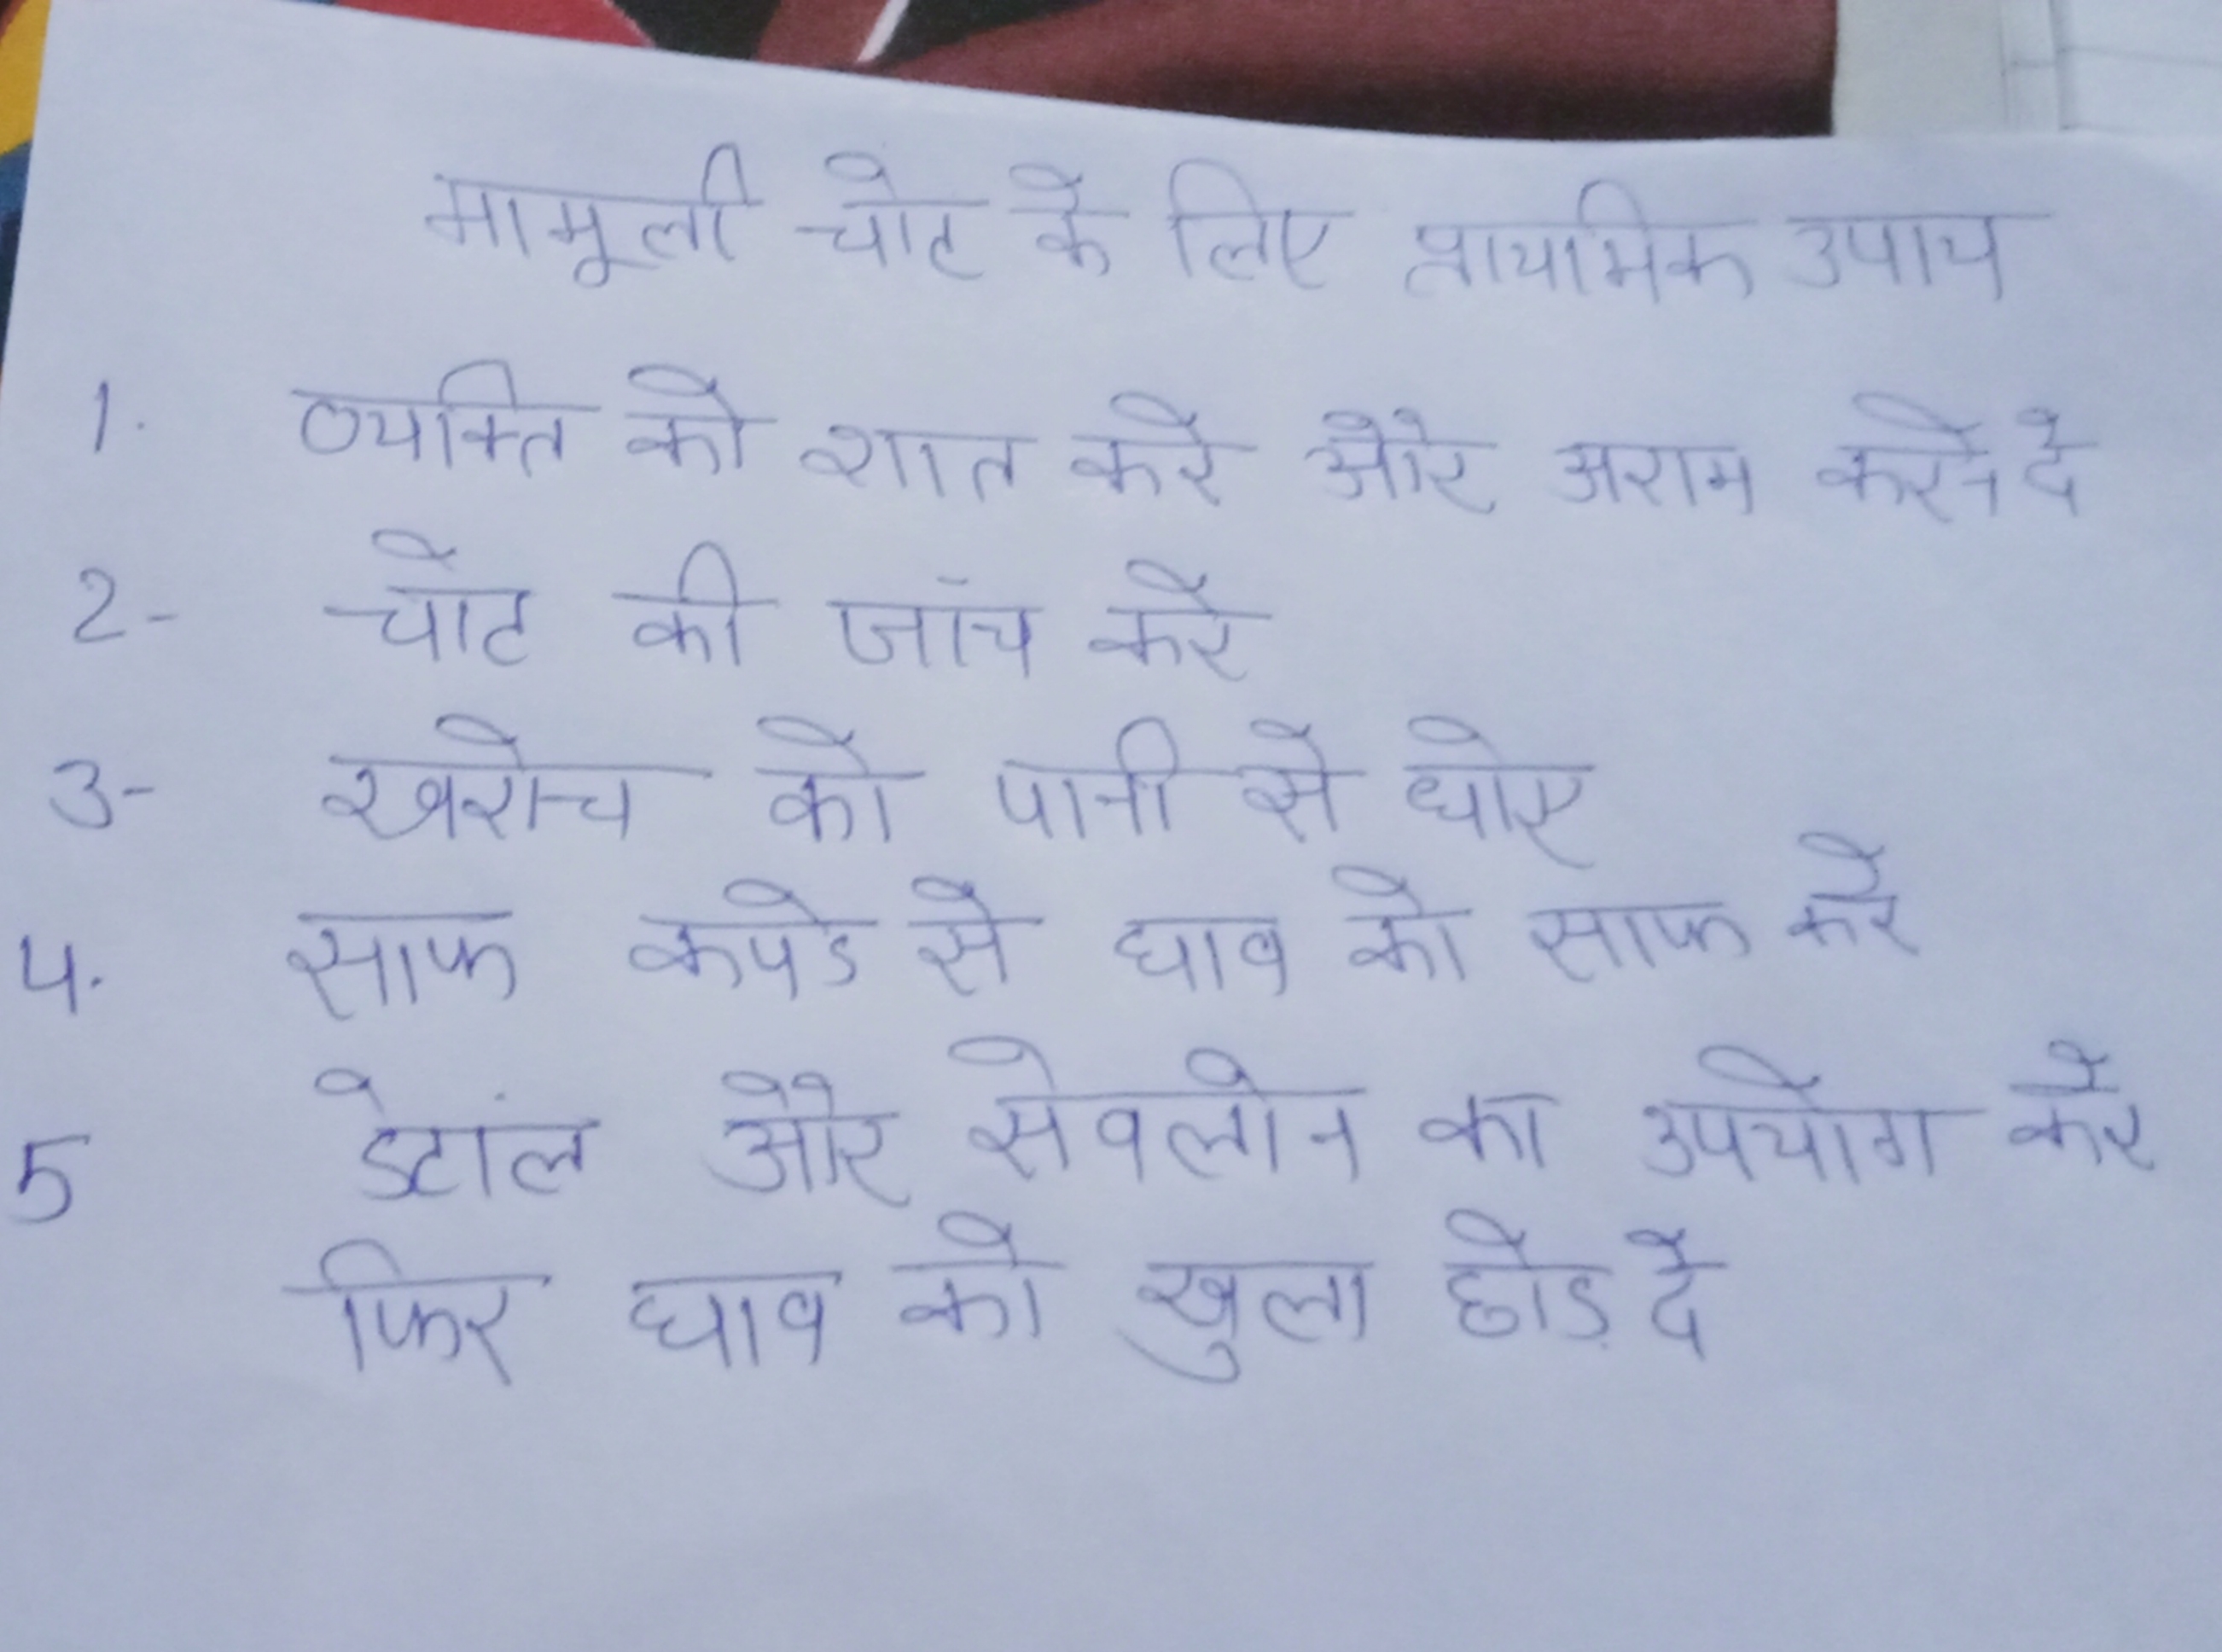 मामूली चोट के लिए प्राथमिक उपाय
1. व्यक्ति को शात करे और अराम करने दे
2- चोट की जांच करे
3- खरोच को पानी से धोए
4. साफ कपडे से घाव को साफ करे
5 डेटांल और सेवलोन का उपयोग करे
फिर घाव को खुला छोड़ दे